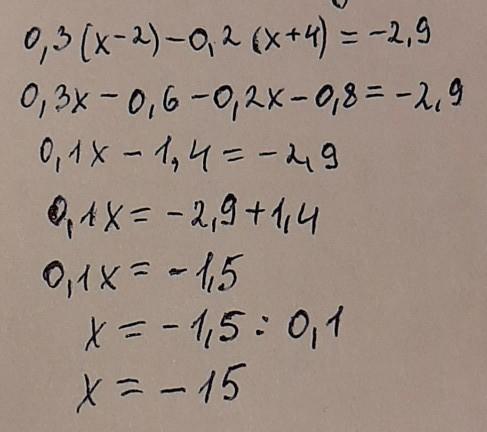 0,3(x-2)-0,2(x+4)=-2,9
0,3x-0,6-0,2x-0,8=-2,9
0,1x-1,4=-2,9
0,1x=-2,9+1,4
0,1x=-1,5
x=-1,5:0,1
x=-15